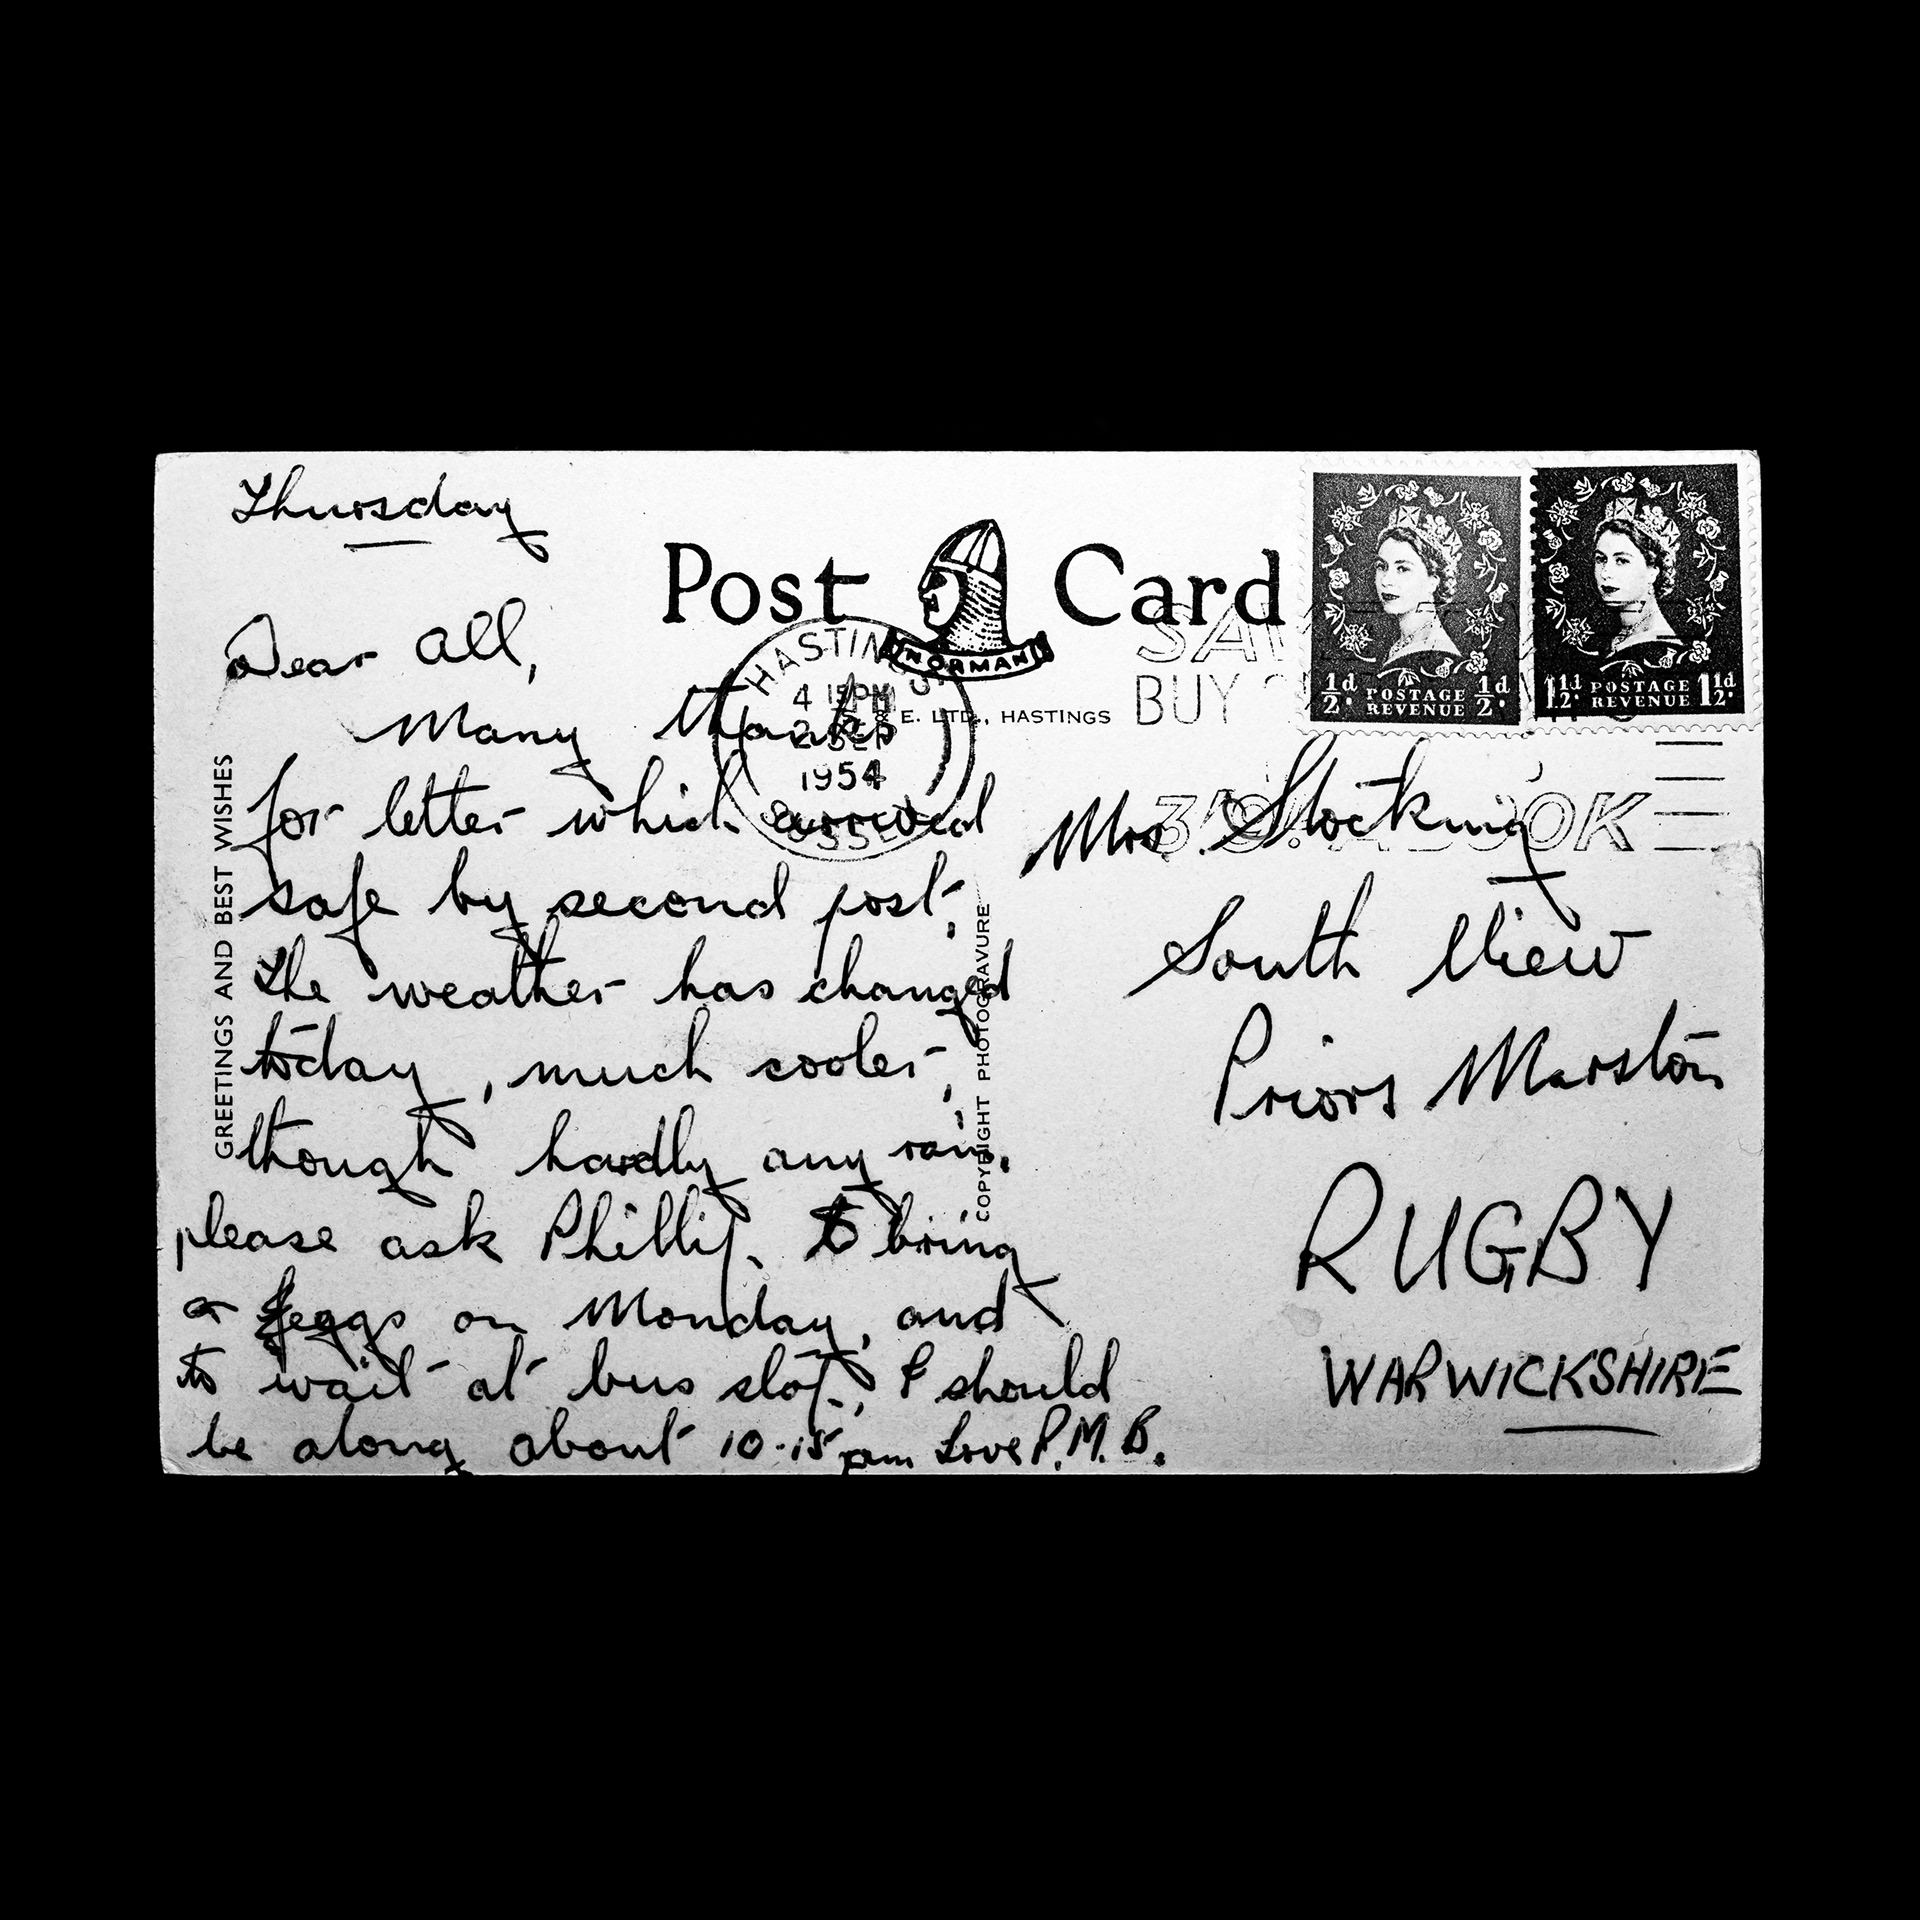 Thursday
Post Card
NORMAN
& E. LTD., HASTINGS
HASTINGS
4 15PM
2 SEP
1954
SUSSEX
SAVE
BUY
3% A BOOK
½d POSTAGE REVENUE ½d
1½d POSTAGE REVENUE 1½d
GREETINGS AND BEST WISHES
COPYRIGHT PHOTOGRAVURE
Dear All,
Many thanks
for letter which arrived
safe by second post,
The weather has changed
today, much cooler,
though hardly any rain.
please ask Phillip. to bring
eggs on Monday, and
to wait at bus stop, I should
be along about 10.15 pm Love P.M.B.
Mrs. Stocking
South View
Priors Marston
RUGBY
WARWICKSHIRE